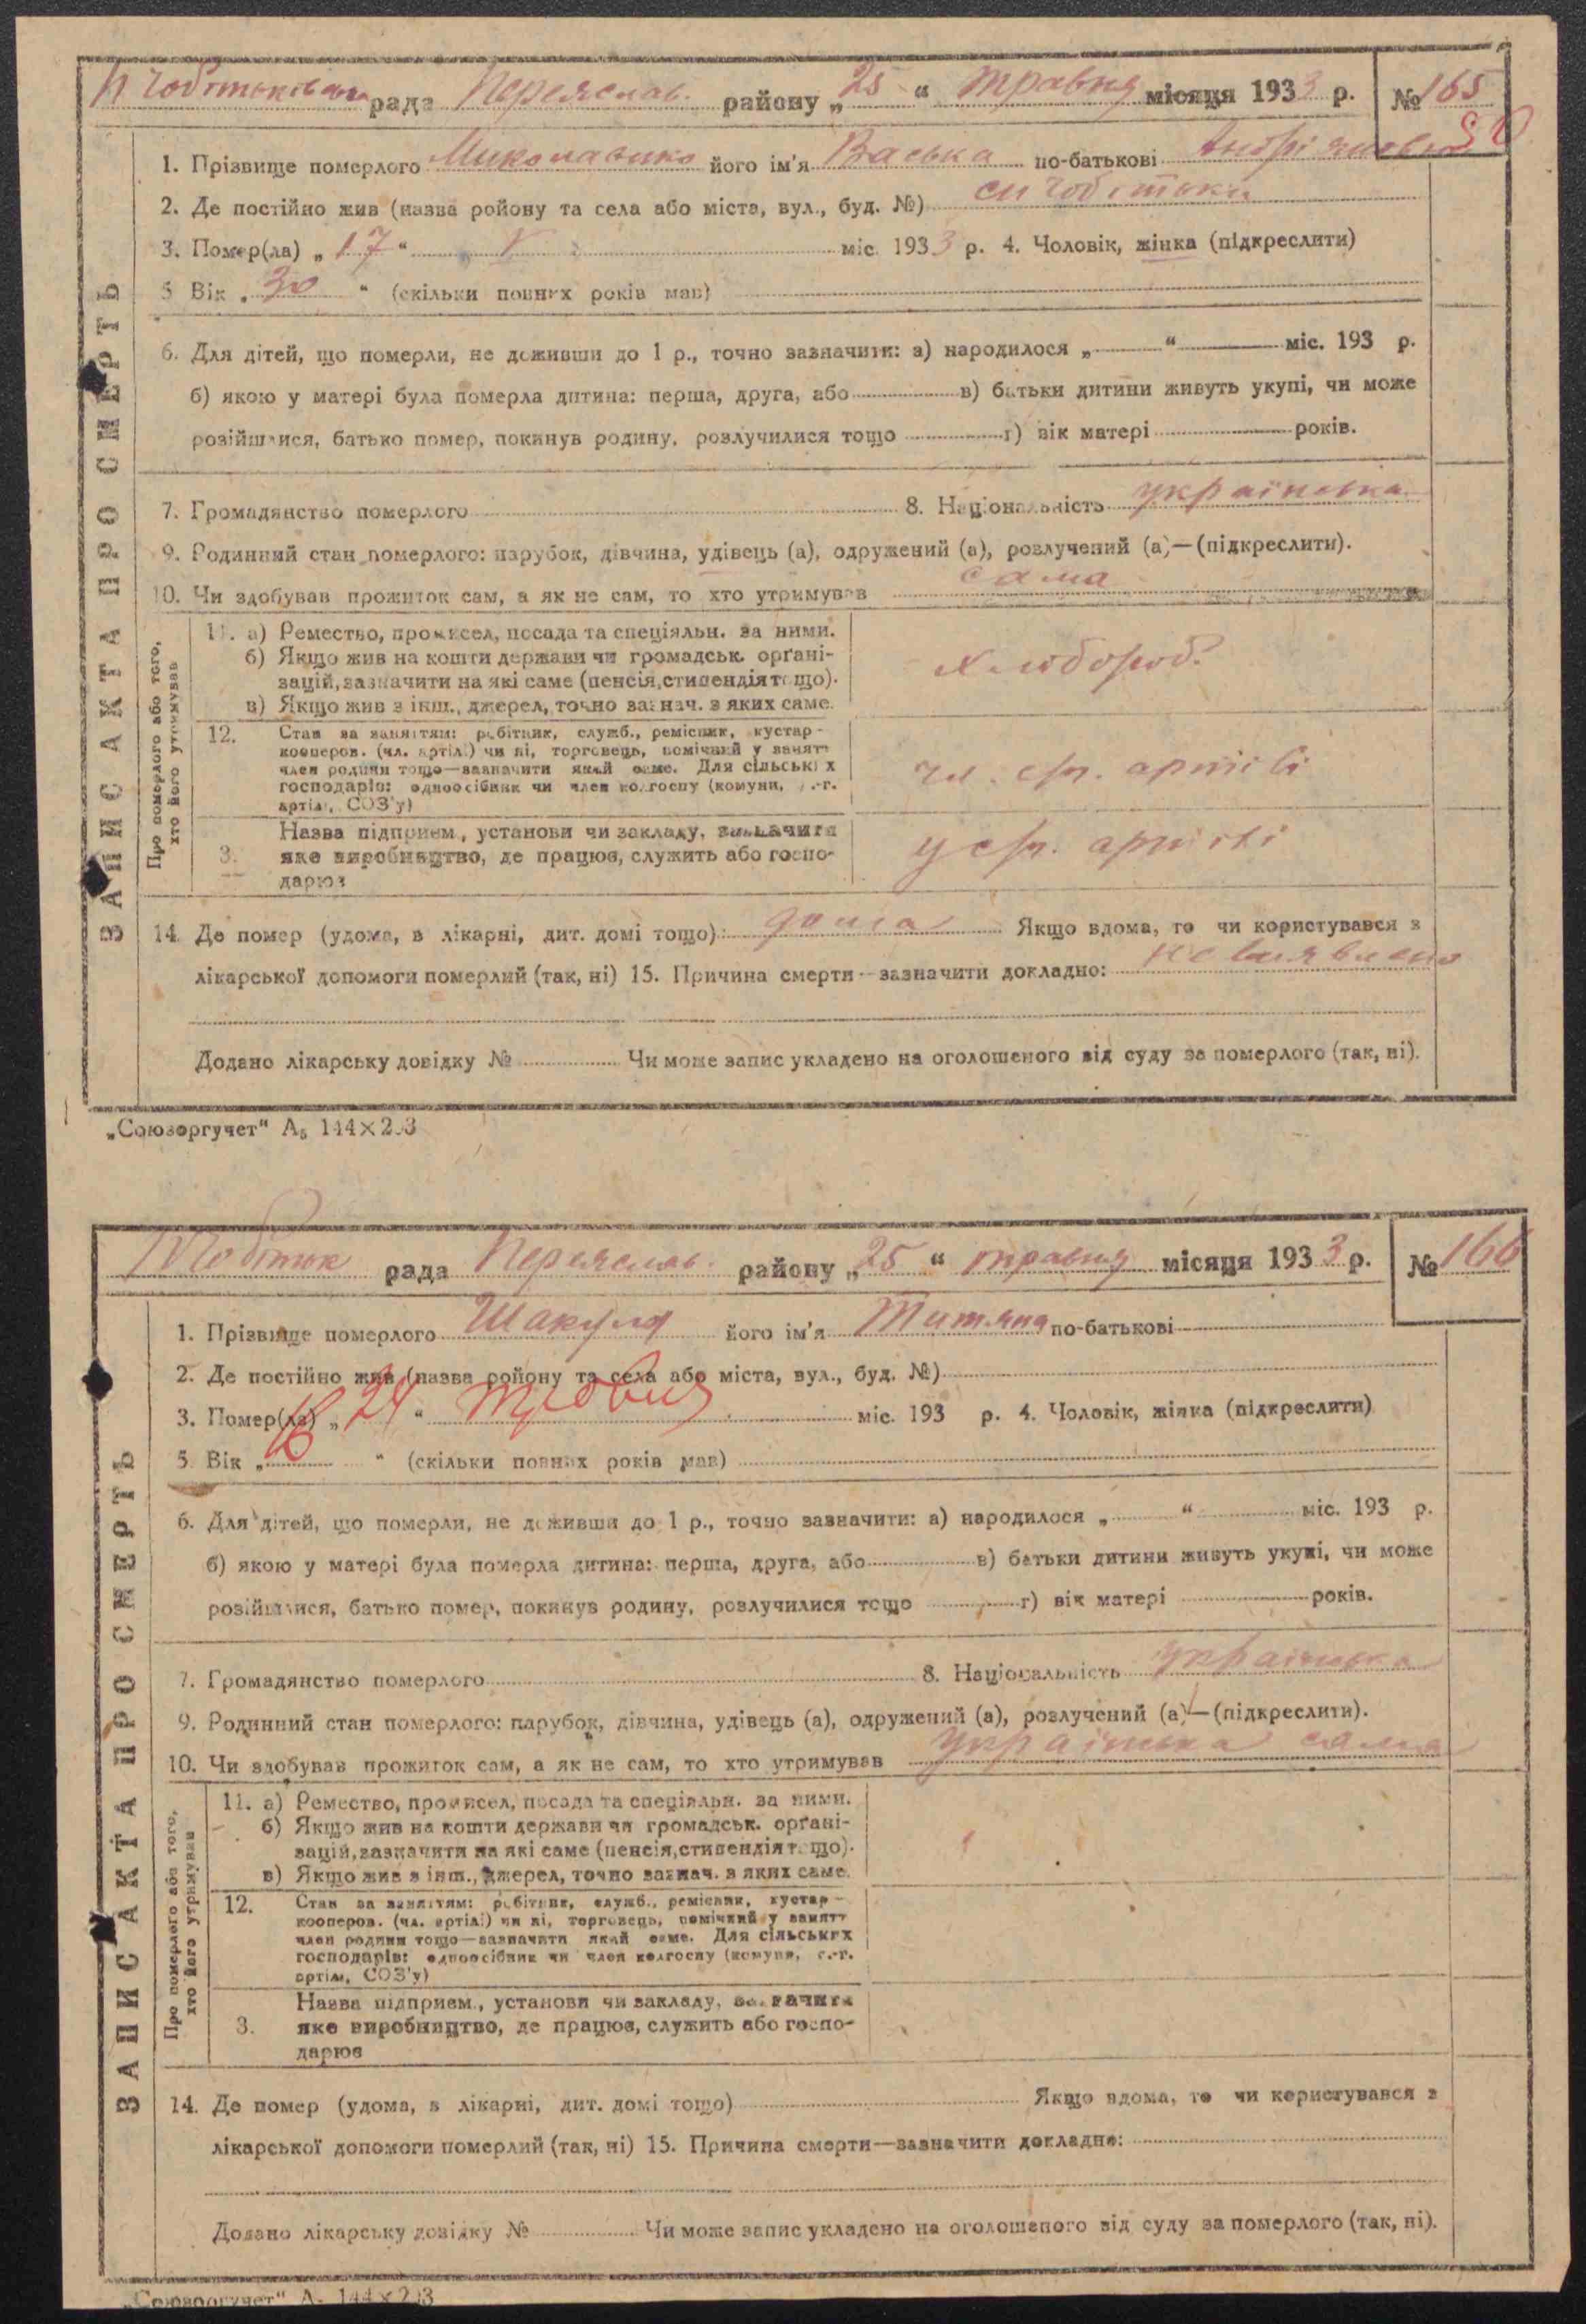 рада Переяслав. району „25“ травня місяця 1933 р. № 165
1. Прізвище померлого Миколаєнко його ім'я Васька по-батькові
2. Де постійно жив (назва ройону та села або міста, вул., буд. №)
3. Помер(ла) „17“ V міс. 1933 р. 4. Чоловік, жінка (підкреслити)
5 Вік „30“ (скільки повних років мав)
6. Для дітей, що померли, не доживши до 1 р., точно зазначити: а) народилося „ “ міс. 193 р.
б) якою у матері була померла дитина: перша, друга, або в) батьки дитини живуть укупі, чи може
розійшлися, батько помер, покинув родину, розлучилися тощо г) вік матері років.
7. Громадянство померлого 8. Національність українська
9. Родинний стан померлого: парубок, дівчина, удівець (а), одружений (а), розлучений (а)—(підкреслити).
10. Чи здобував прожиток сам, а як не сам, то хто утримував сама
ЗАПИС АКТА ПРО СМЕРТЬ
Про померлого або того,
хто його утримував
11. а) Ремество, промисел, посада та спеціяльн. за ними.
б) Якщо жив на кошти держави чи громадськ. орґані-
зацій, зазначити на які саме (пенсія, стипендія тощо).
в) Якщо жив з інш., джерел, точно зазнач. з яких саме.
хлібороб.
12. Стан за заняттям: робітник, служб., ремісник, кустар-
кооперов. (чл. артілі) чи ні, торговець, помічний у занятт
член родини тощо—зазначити який саме. Для сільських
господарів: одноосібник чи член колгоспу (комуни, с.-г.
артілі, СОЗ'у)
чл. с/г. артілі
3. Назва підприєм., установи чи закладу, зазначити
яке виробництво, де працює, служить або госпо-
дарює
у с/г. артілі
14. Де помер (удома, в лікарні, дит. домі тощо): дома Якщо вдома, то чи користувався з
лікарської допомоги померлий (так, ні) 15. Причина смерти—зазначити докладно: не виявлено
Додано лікарську довідку № Чи може запис укладено на оголошеного від суду за померлого (так, ні).
„Союзоргучет“ А₅ 144×203
рада Переяслав. району „25“ травня місяця 1933 р. № 166
1. Прізвище померлого Шакула його ім'я Титяна по-батькові
2. Де постійно жив (назва ройону та села або міста, вул., буд. №)
3. Помер(ла) „24“ травня міс. 193 р. 4. Чоловік, жінка (підкреслити)
5 Вік „ “ (скільки повних років мав)
6. Для дітей, що померли, не доживши до 1 р., точно зазначити: а) народилося „ “ міс. 193 р.
б) якою у матері була померла дитина: перша, друга, або в) батьки дитини живуть укупі, чи може
розійшлися, батько помер, покинув родину, розлучилися тощо г) вік матері років.
7. Громадянство померлого 8. Національність українська
9. Родинний стан померлого: парубок, дівчина, удівець (а), одружений (а), розлучений (а)—(підкреслити).
10. Чи здобував прожиток сам, а як не сам, то хто утримував українська сама
ЗАПИС АКТА ПРО СМЕРТЬ
Про померлого або того,
хто його утримував
11. а) Ремество, промисел, посада та спеціяльн. за ними.
б) Якщо жив на кошти держави чи громадськ. орґані-
зацій, зазначити на які саме (пенсія, стипендія тощо).
в) Якщо жив з інш., джерел, точно зазнач. з яких саме.
12. Стан за заняттям: робітник, служб., ремісник, кустар-
кооперов. (чл. артілі) чи ні, торговець, помічний у занятт
член родини тощо—зазначити який саме. Для сільських
господарів: одноосібник чи член колгоспу (комуни, с.-г.
артілі, СОЗ'у)
3. Назва підприєм., установи чи закладу, зазначити
яке виробництво, де працює, служить або госпо-
дарює
14. Де помер (удома, в лікарні, дит. домі тощо) Якщо вдома, то чи користувався з
лікарської допомоги померлий (так, ні) 15. Причина смерти—зазначити докладно:
Додано лікарську довідку № Чи може запис укладено на оголошеного від суду за померлого (так, ні).
„Союзоргучет“ А₅ 144×203